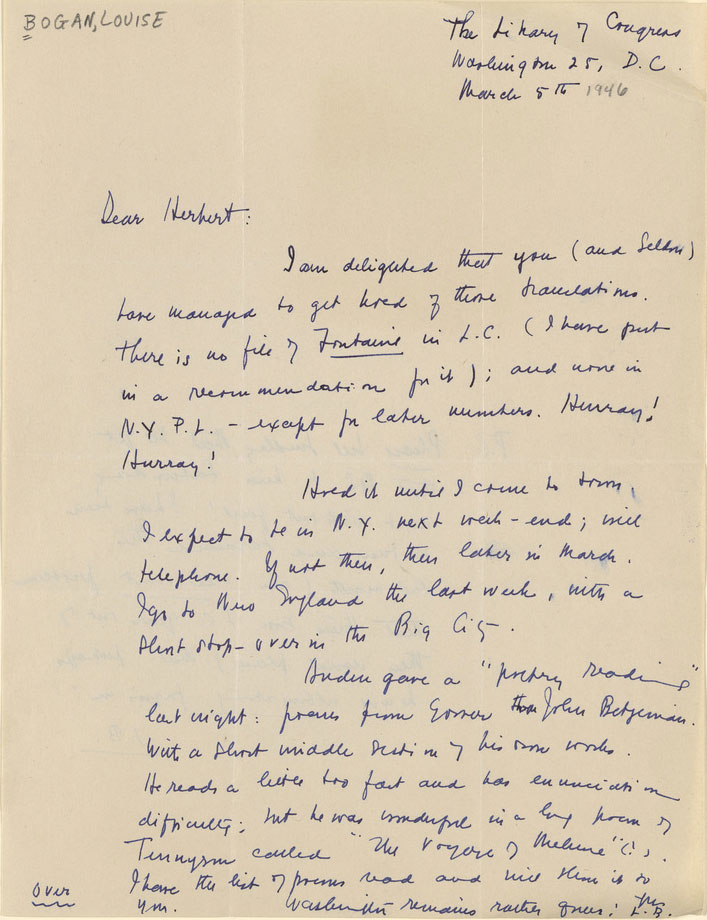 BOGAN, LOUISE
The Library of Congress
Washington 25, D.C.
March 5th 1946
Dear Herbert:
I am delighted that you (and Seldon)
have managed to get hold of those translations.
There is no file of Fontaine in L.C. (I have put
in a recommendation for it); and none in
N.Y.P.L. – except for later numbers. Hurray!
Hurray!
Hold it until I come to town.
I expect to be in N.Y. next week-end; will
telephone. If not then, then later in March.
I go to New England the last week, with a
short stop-over in the Big City.
Auden gave a "poetry reading"
last night: poems from Gower thru John Betjeman.
With a short middle section of his own works.
He reads a little too fast and has enunciation
difficulty; but he was wonderful in a long poem of
Tennyson called "The Voyage of Maldune" (?).
I have the list of poems read and will show it to
you. Washington remains rather queer!
L.B.
Over